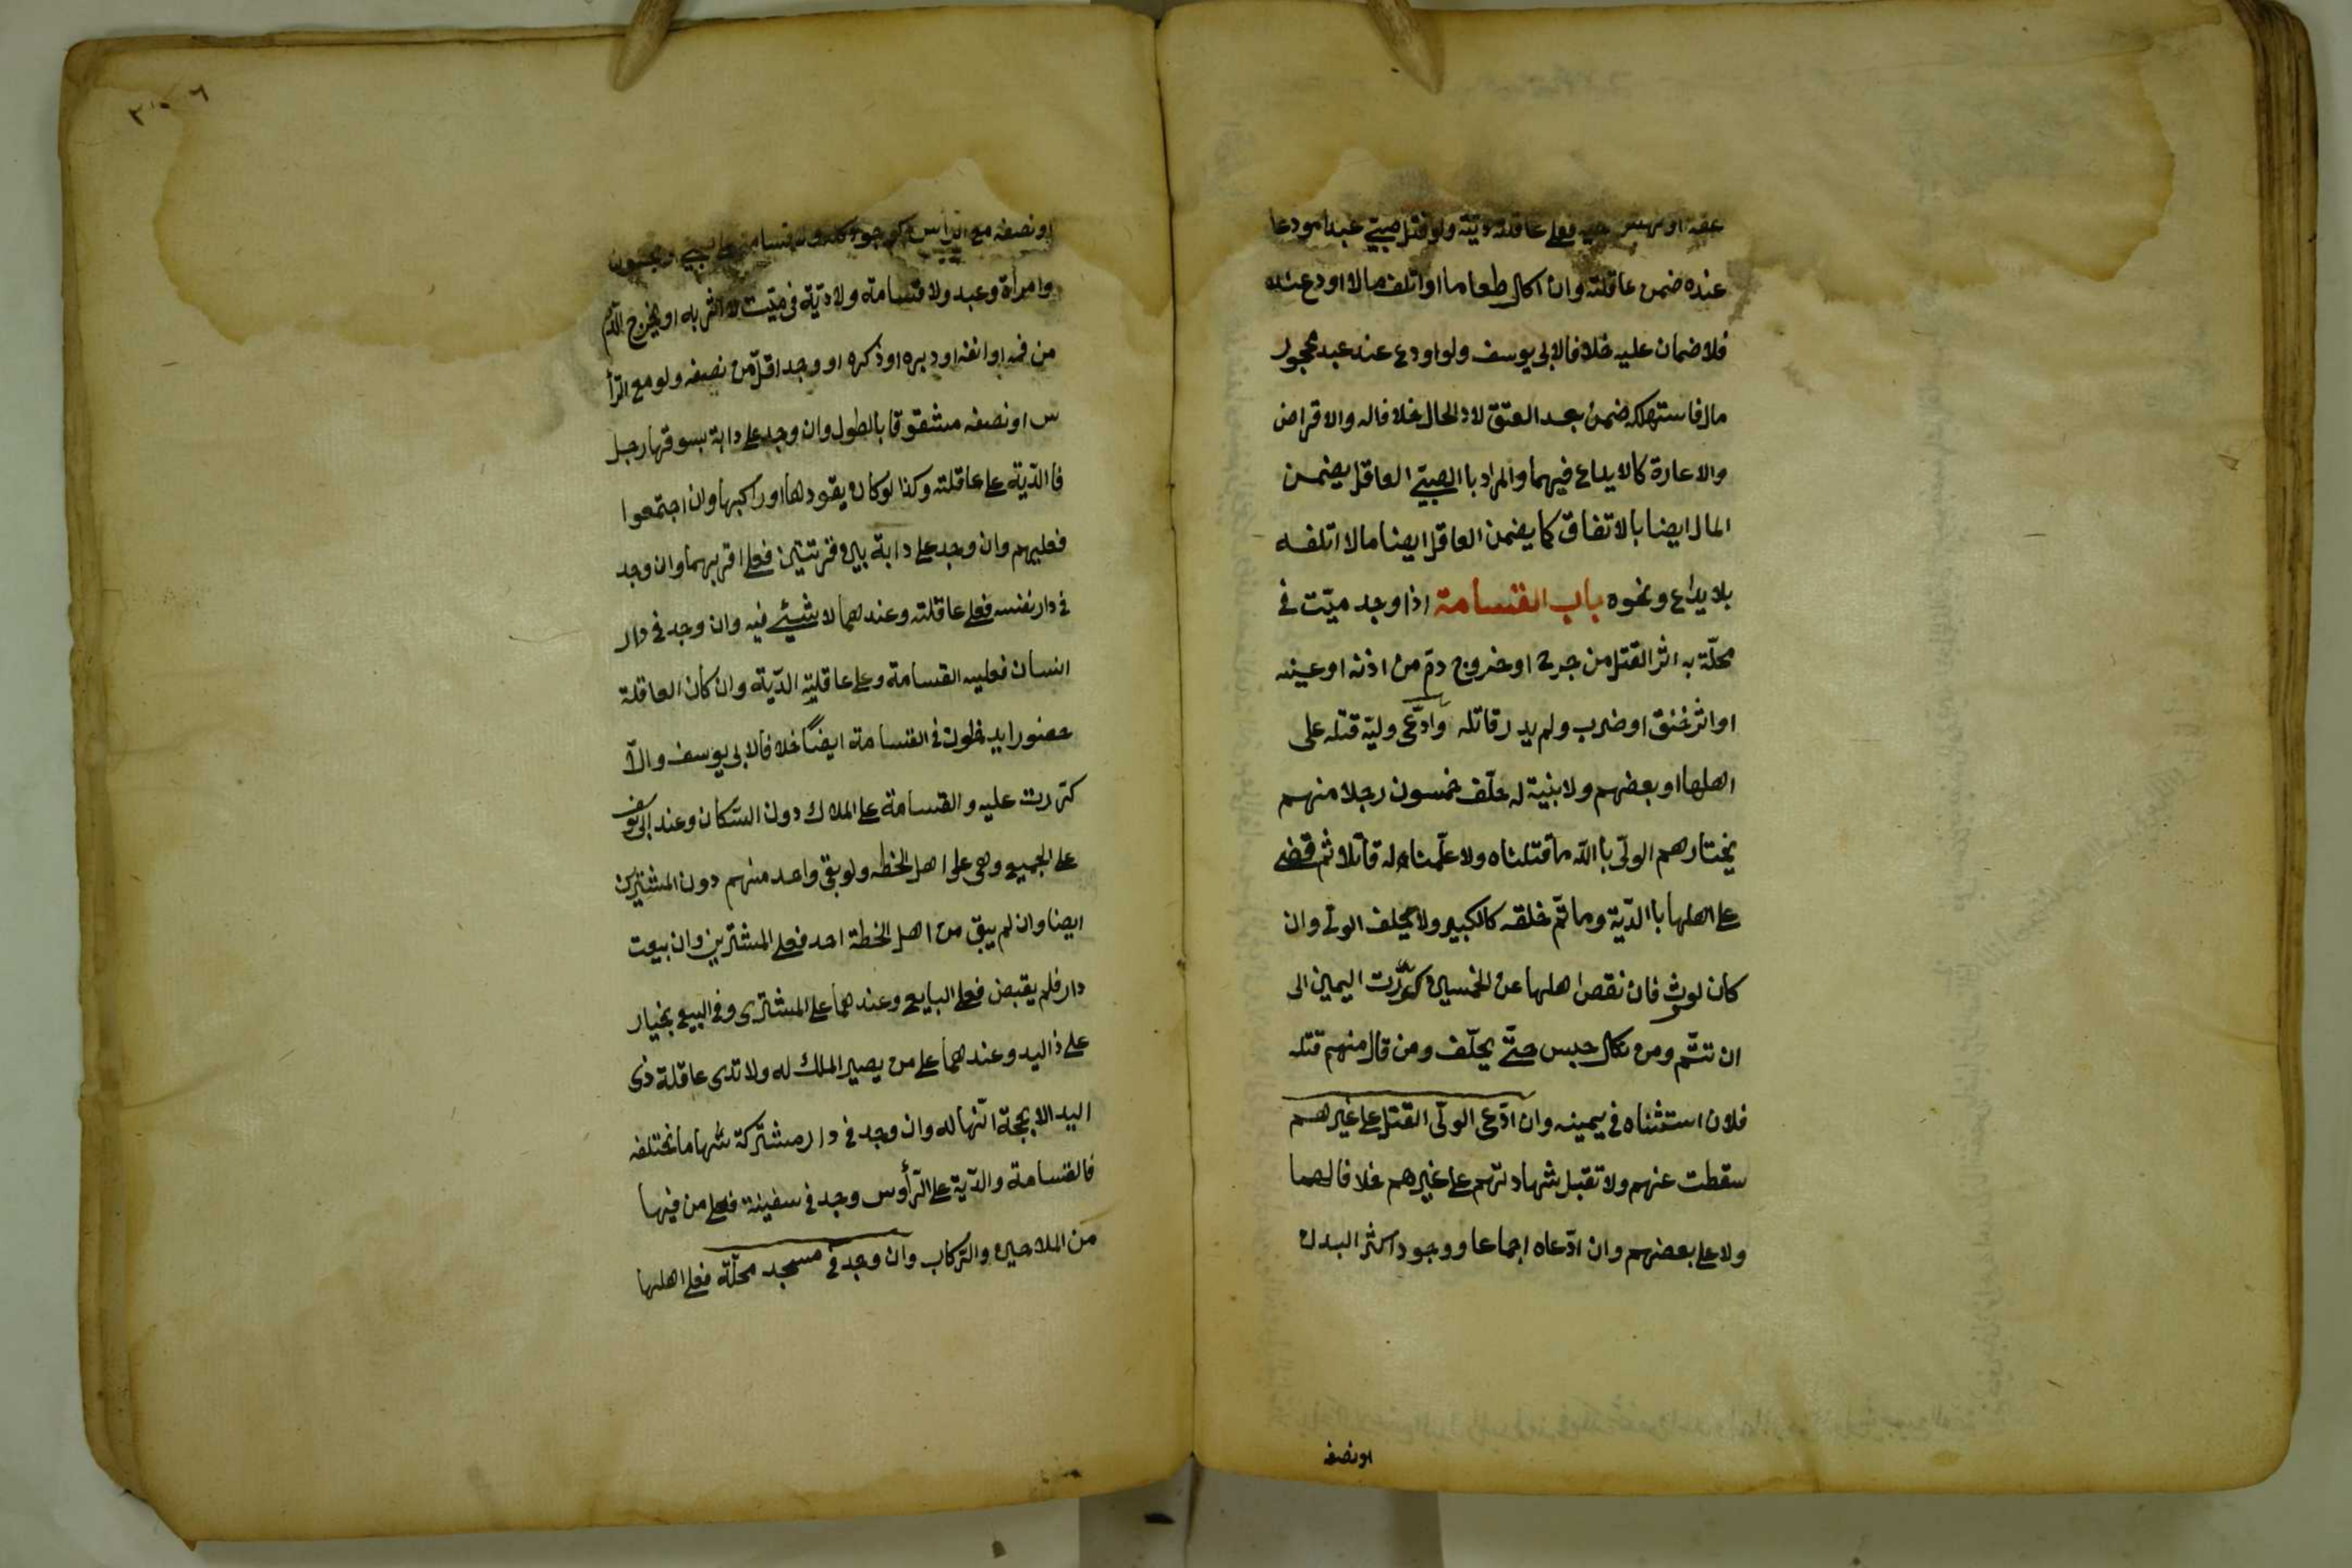 عقه او نهش حية فعلى عاقلته ديته ولو قتل صبيّ عبدا مودعا
عنده ضمن عاقلته وان اكل طعاما او اتلف مالا اودع عنده
فلا ضمان عليه خلافا لابى يوسف ولو اودع عند عبد محجور
مال فاستهلكه ضمن بعد العتق لا الحال خلافا له والاقراض
والاعارة كالايداع فيهما والمراد باالصبيّ العاقل يضمن
المال ايضا بالاتفاق كما يضمن العاقل ايضا مالا اتلفه
بلا يداع ونحوه باب القسامة اذا وجد ميّت فى
محلّة به اثر القتل من جرح او خروج دم من اذنه او عينه
او اثر خنق او ضرب ولم يدر قاتله وادّعى وليّه قتله على
اهلها او بعضهم ولا بنية له حلّف خمسون رجلا منهم
يختارهم الولّى باالله ما قتلناه ولا علّمناه له قاتلا ثم قضى
على اهلها باالدّية وما تمّ خلقه كالكبير ولا يحلف الولّى وان
كان لوث فان نقص اهلها عن الخمسين كرّرت اليمين الى
ان تتمّ ومن نكل حبس حتّى يحلّف ومن قال منهم قتله
فلان استثناه فى يمينه وان ادّعى الولّى القتل على غيرهم
سقطت عنهم ولا تقبل شهادتهم على غيرهم خلافا لهما
ولا على بعضهم وان ادّعاه اجماعا ووجود اكثر البدن
او نصفه
٣٠٦
او نصفه مع الرأس كوجود كله ولا قسامة على صبى ومجنون
وامرأة وعبد ولا قسامة ولا ديّة فى ميّت لا اثر به او يخرج الدّم
من فمه او انفه او دبره او ذكره او وجد اقلّ من نصفه ولو مع الرأ
س او نصفه مشقوقا بالطول وان وجد على دابة يسوقها رجل
فاالدّية على عاقلته وكذا لو كان يقودها او راكبها وان اجتمعوا
فعليهم وان وجد على دابة بين قريتين فعلى اقربهما وان وجد
فى دار نفسه فعلى عاقلته وعندهما لا شيئ فيه وان وجد فى دار
انسان فعليه القسامة وعلى عاقليته الدّية وان كان العاقلة
حضورا يدخلون فى القسامة ايضًا خلافا لابى يوسف والاّ
كرّرت عليه والقسامة على الملاك دون السّكان وعند ابى يوسف
على الجميع وهى على اهل الخطه ولو بقى واحد منهم دون المشترين
ايضا وان لم يبق من اهل الخطة احد فعلى المشترين وان بيعت
دار فلم يقبض فعلى البايع وعندهما على المشترى وفى البيع بخيار
على ذاليد وعندهما على من يصير الملك له ولا تدى عاقلة ذى
اليد الا بحجّة انّها له وان وجد فى دار مشتركة سهاما مختلفه
فالقسامة والدّية على الرّأوس وجد فى سفينة فعلى من فيها
من الملاحين والرّكاب وان وجد فى مسجد محلّة فعلى اهلها